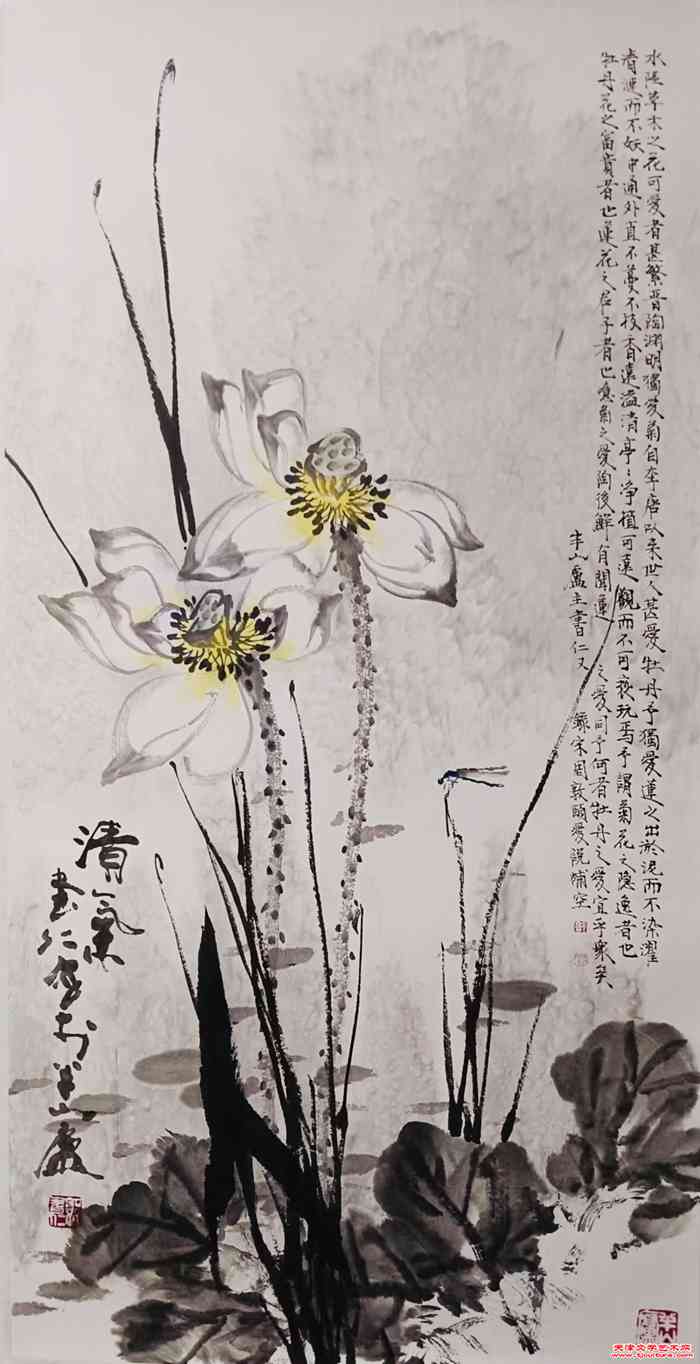 水陸草木之花可愛者甚繁晉陶淵明獨愛菊自李唐以來世人甚愛牡丹予獨愛蓮之出淤泥而不染濯
清漣而不妖中通外直不蔓不枝香遠溢清亭〻淨植可遠觀而不可褻玩焉予謂菊花之隱逸者也
牡丹花之富貴者也蓮花之君子者也噫菊之愛陶後鮮有聞蓮之愛同予何者牡丹之愛宜乎眾矣
半山廬主書仁又錄宋周敦頤愛說補空
清氣
書仁寫於半山廬
天津文学艺术网